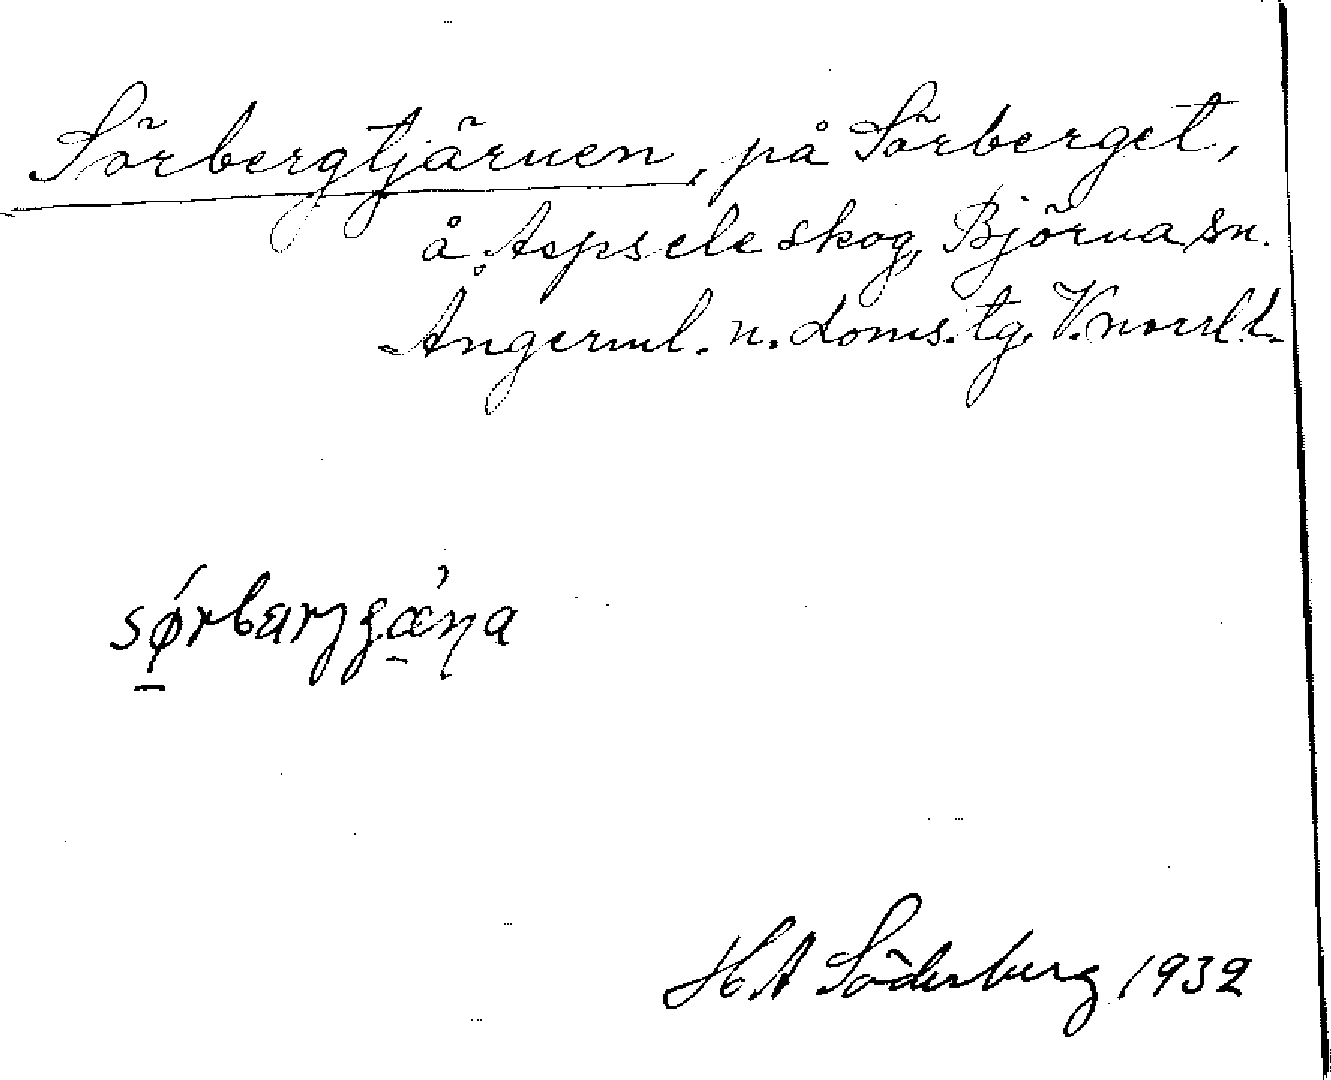 Sörbergtjärnen, på Sörberget,
å Aspsele skog, Björna sn.
Ångerml. n. doms. tg. V. norrl. l.
H A Söderberg 1932